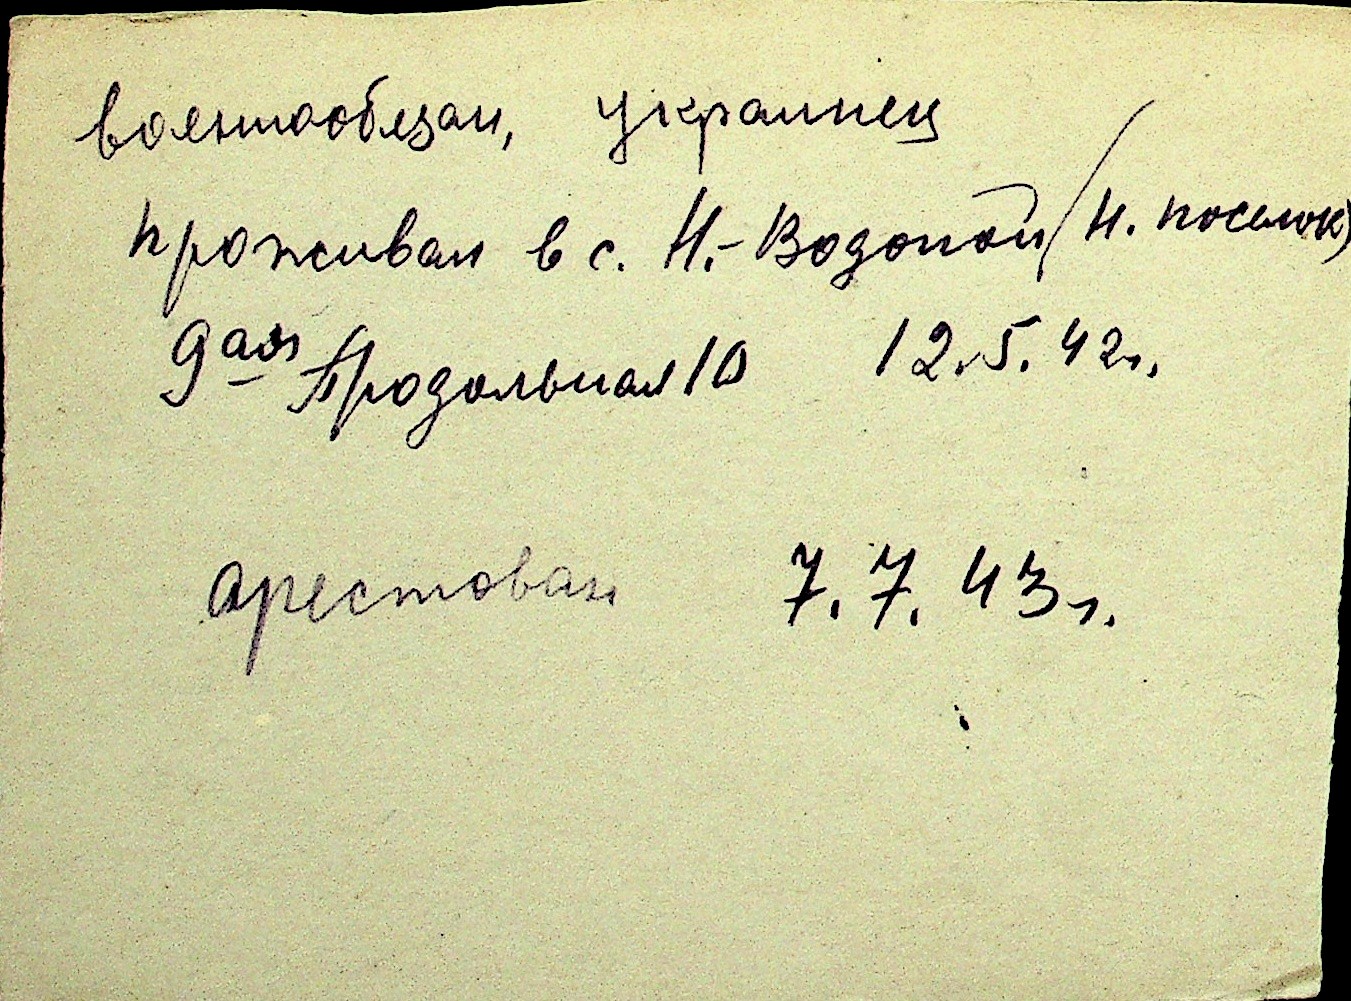 военнообязан, украинец
проживал в с. Н.-Водопой (Н. поселок)
9ая Продольная 10 12.5.42г.
арестован 7.7.43г.